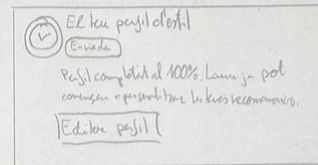 El teu perfil d'estil
Enviada
Perfil completat al 100%. Laura ja pot
començar a personalitzar les teves recomanacions.
Editar perfil